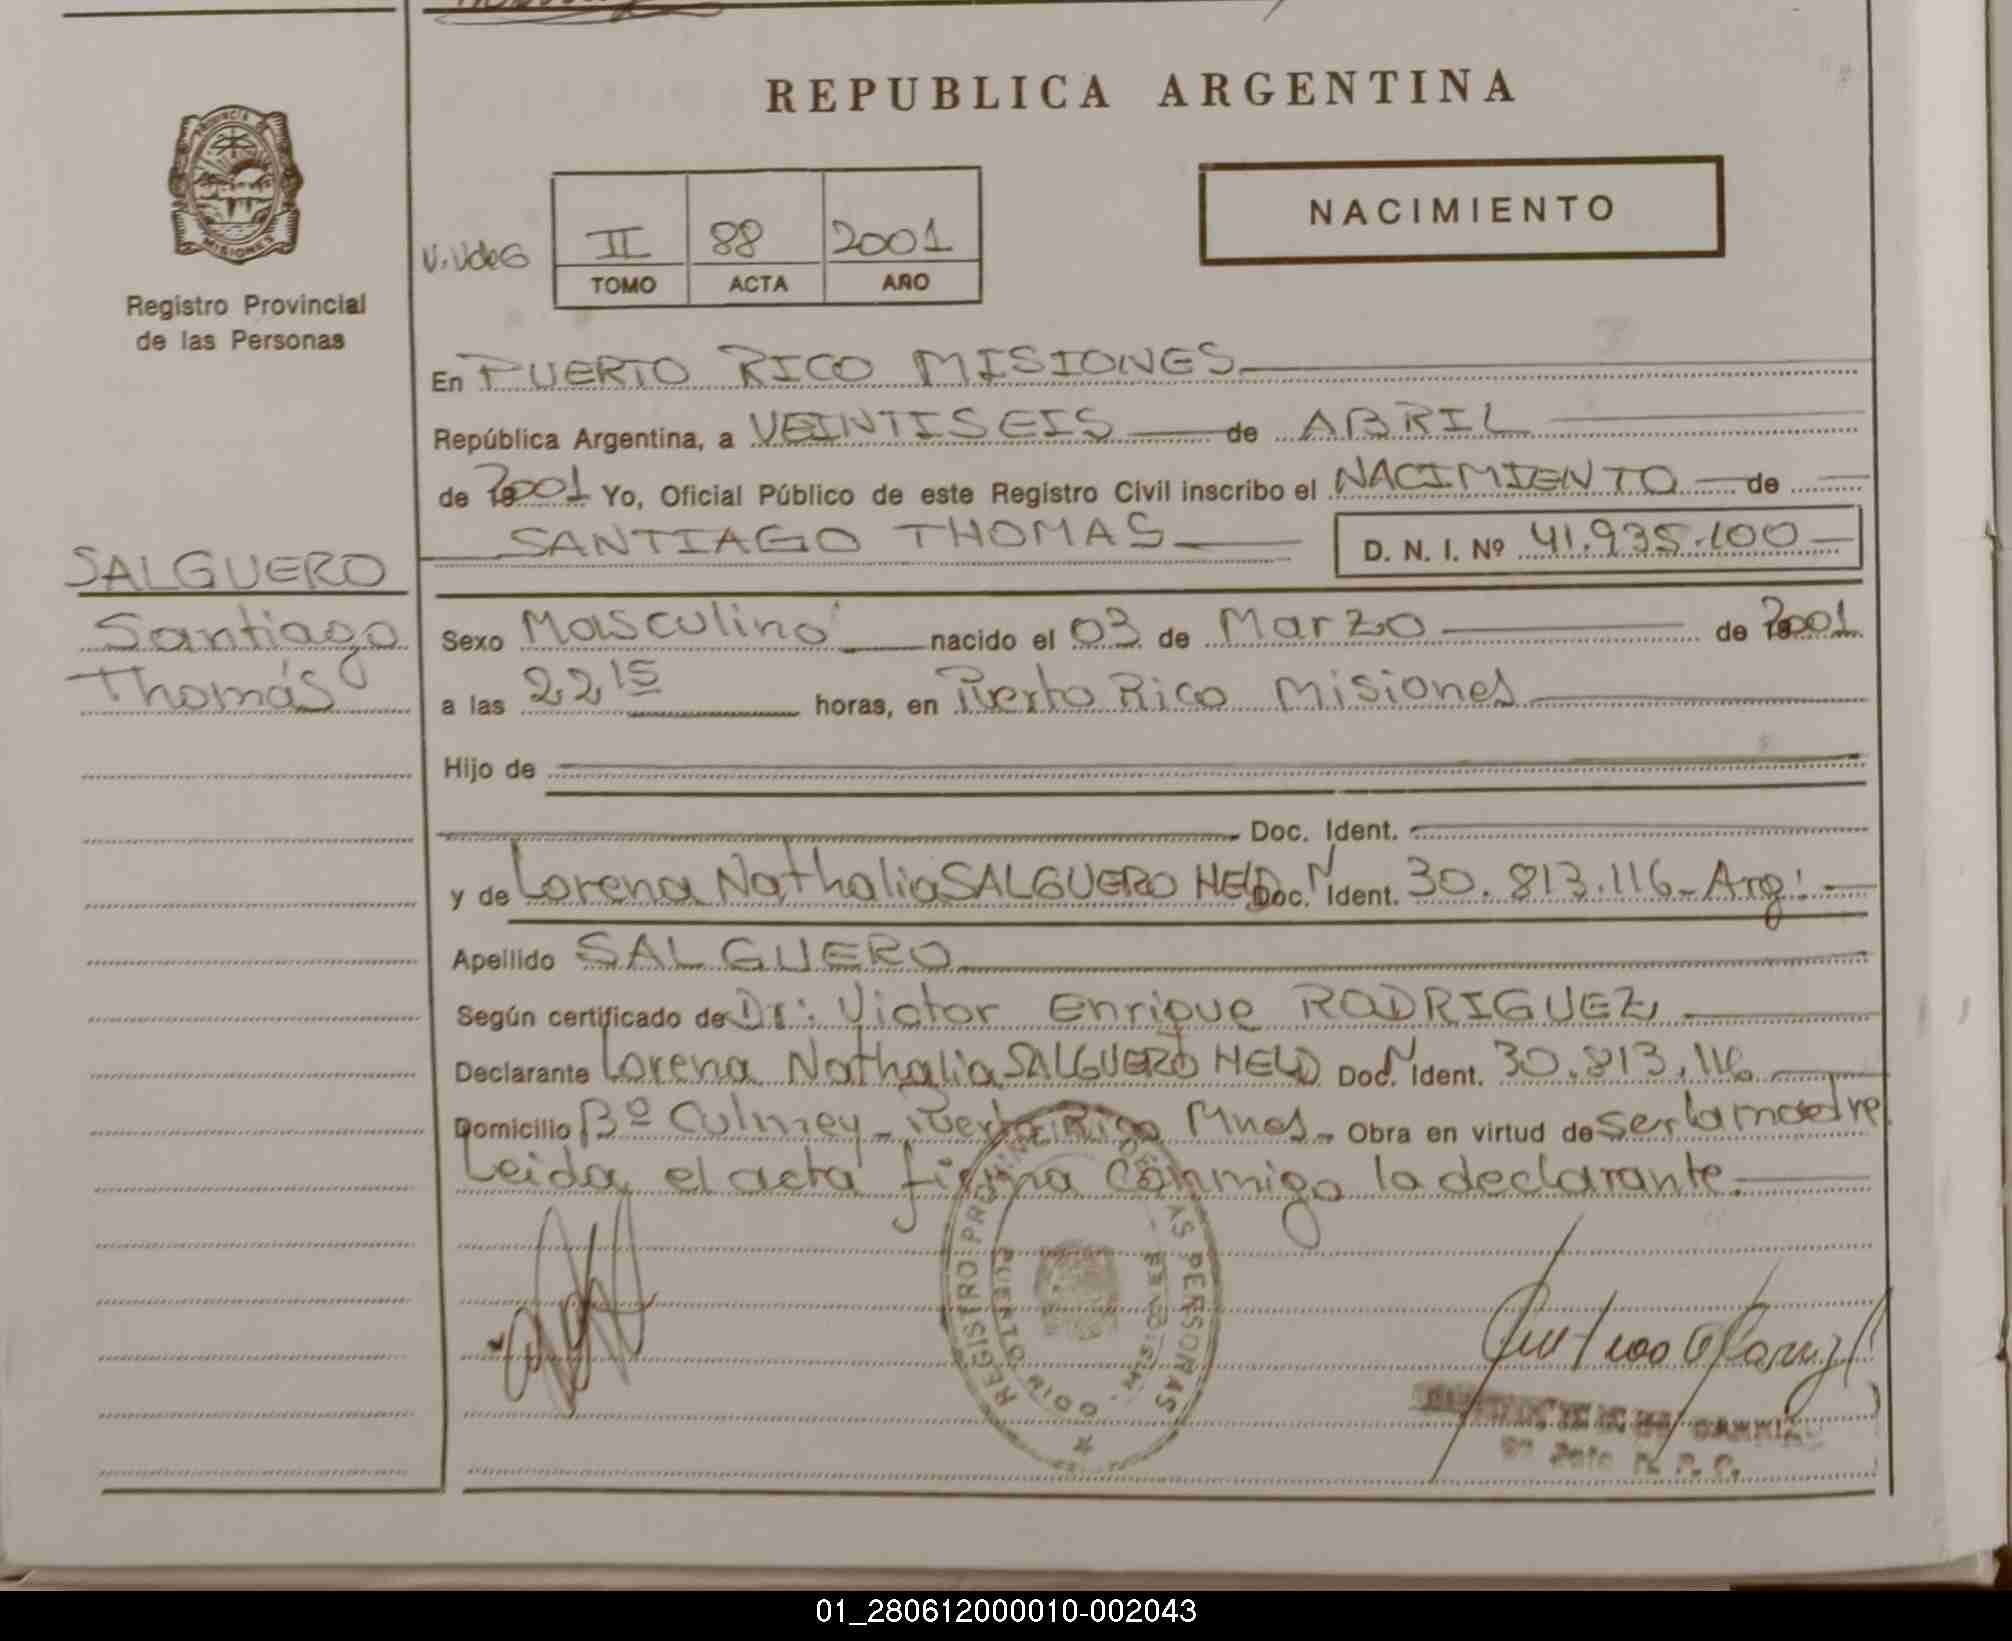 REPUBLICA ARGENTINA
PROVINCIA DE
MISIONES
Registro Provincial
de las Personas
NACIMIENTO
II 88 2001
TOMO ACTA AÑO
En PUERTO RICO MISIONES
República Argentina, a VEINTISEIS de ABRIL
de 2001 Yo, Oficial Público de este Registro Civil inscribo el NACIMIENTO de
SANTIAGO THOMAS D. N. I. Nº 41.935.100
SALGUERO
Santiago
Thomás
Sexo Masculino nacido el 03 de Marzo de 2001
a las 22 15 horas, en Puerto Rico Misiones
Hijo de
Doc. Ident.
y de Lorena Nathalia SALGUERO HELD Doc. N Ident. 30.813.116 - Arg.
Apellido SALGUERO
Según certificado de Dr: Victor Enrique RODRIGUEZ
Declarante Lorena Nathalia SALGUERO HELD Doc. N Ident. 30.813.116
Domicilio Bº Culmey - Puerto Rico Mnes - Obra en virtud de ser la madre
Leida el acta firma conmigo la declarante.
REGISTRO PROVINCIAL DE LAS PERSONAS
PUERTO RICO - MISIONES
R. P. P.
01_280612000010-002043